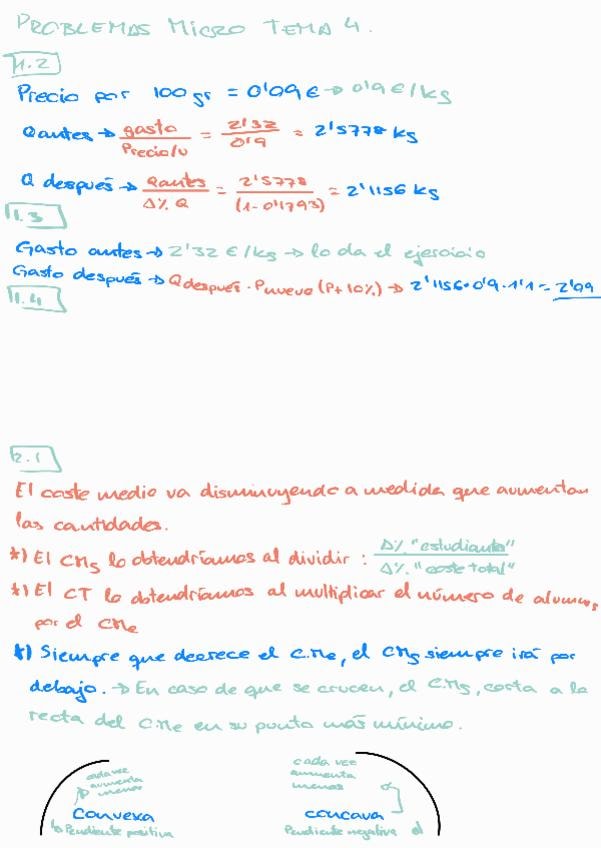 PROBLEMAS MICRO TEMA 4.
1.2
Precio por 100 gr = 0'09 € → 0'9 €/kg
Q antes → gasto / Precio/u = 2'32 / 0'9 = 2'5778 kg
Q después → Qantes / Δ% Q = 2'5778 / (1-0'1793) = 2'1156 kg
1.3
Gasto antes → 2'32 €/kg → lo da el ejercicio
Gasto después → Qdespués · Pnuevo (P+10%) → 2'1156·0'9·1'1 = 2'09
1.4
2.1
El coste medio va disminuyendo a medida que aumentan
las cantidades.
*) El CMg lo obtendríamos al dividir : Δ% "estudiante" / Δ% "coste total"
*) El CT lo obtendríamos al multiplicar el número de alumnos
por el CMe
*) Siempre que decrece el C.Me, el CMg siempre irá por
debajo. → En caso de que se crucen, el C.Mg, corta a la
recta del C.Me en su punto más mínimo.
cada vez
aumenta
menos
convexa
↳ Pendiente positiva
cada vez
aumenta
menos
concava
Pendiente negativa